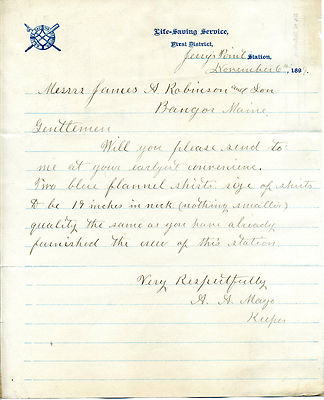 Life-Saving Service,
First District,
Jerry's Point Station,
November 6th, 189
Messrs James A Robinson and Son
Bangor Maine.
Gentlemen
Will you please send to
me at your earlyest convenience.
Two blue flannel shirts size of shirts
to be 19 inches in neck (nothing smaller)
quality the same as you have already
furnished the crew of this station.
Very Respectfully
A. A. Mayo
Keeper